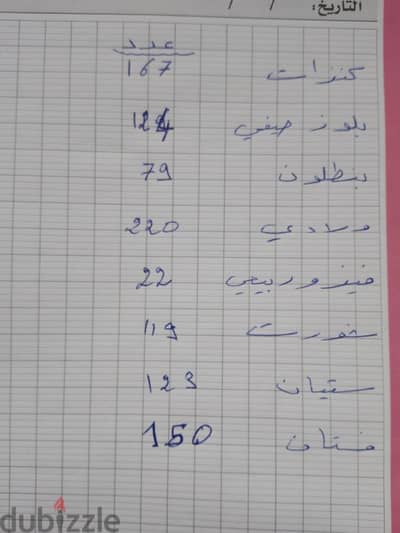 التاريخ: / /
عدد
كنزات 167
بلوز صيفي 124
بنطلون 79
ولادي 220
فيزو ربيعي 22
شورت 119
ستيان 123
فستان 150
dubizzle